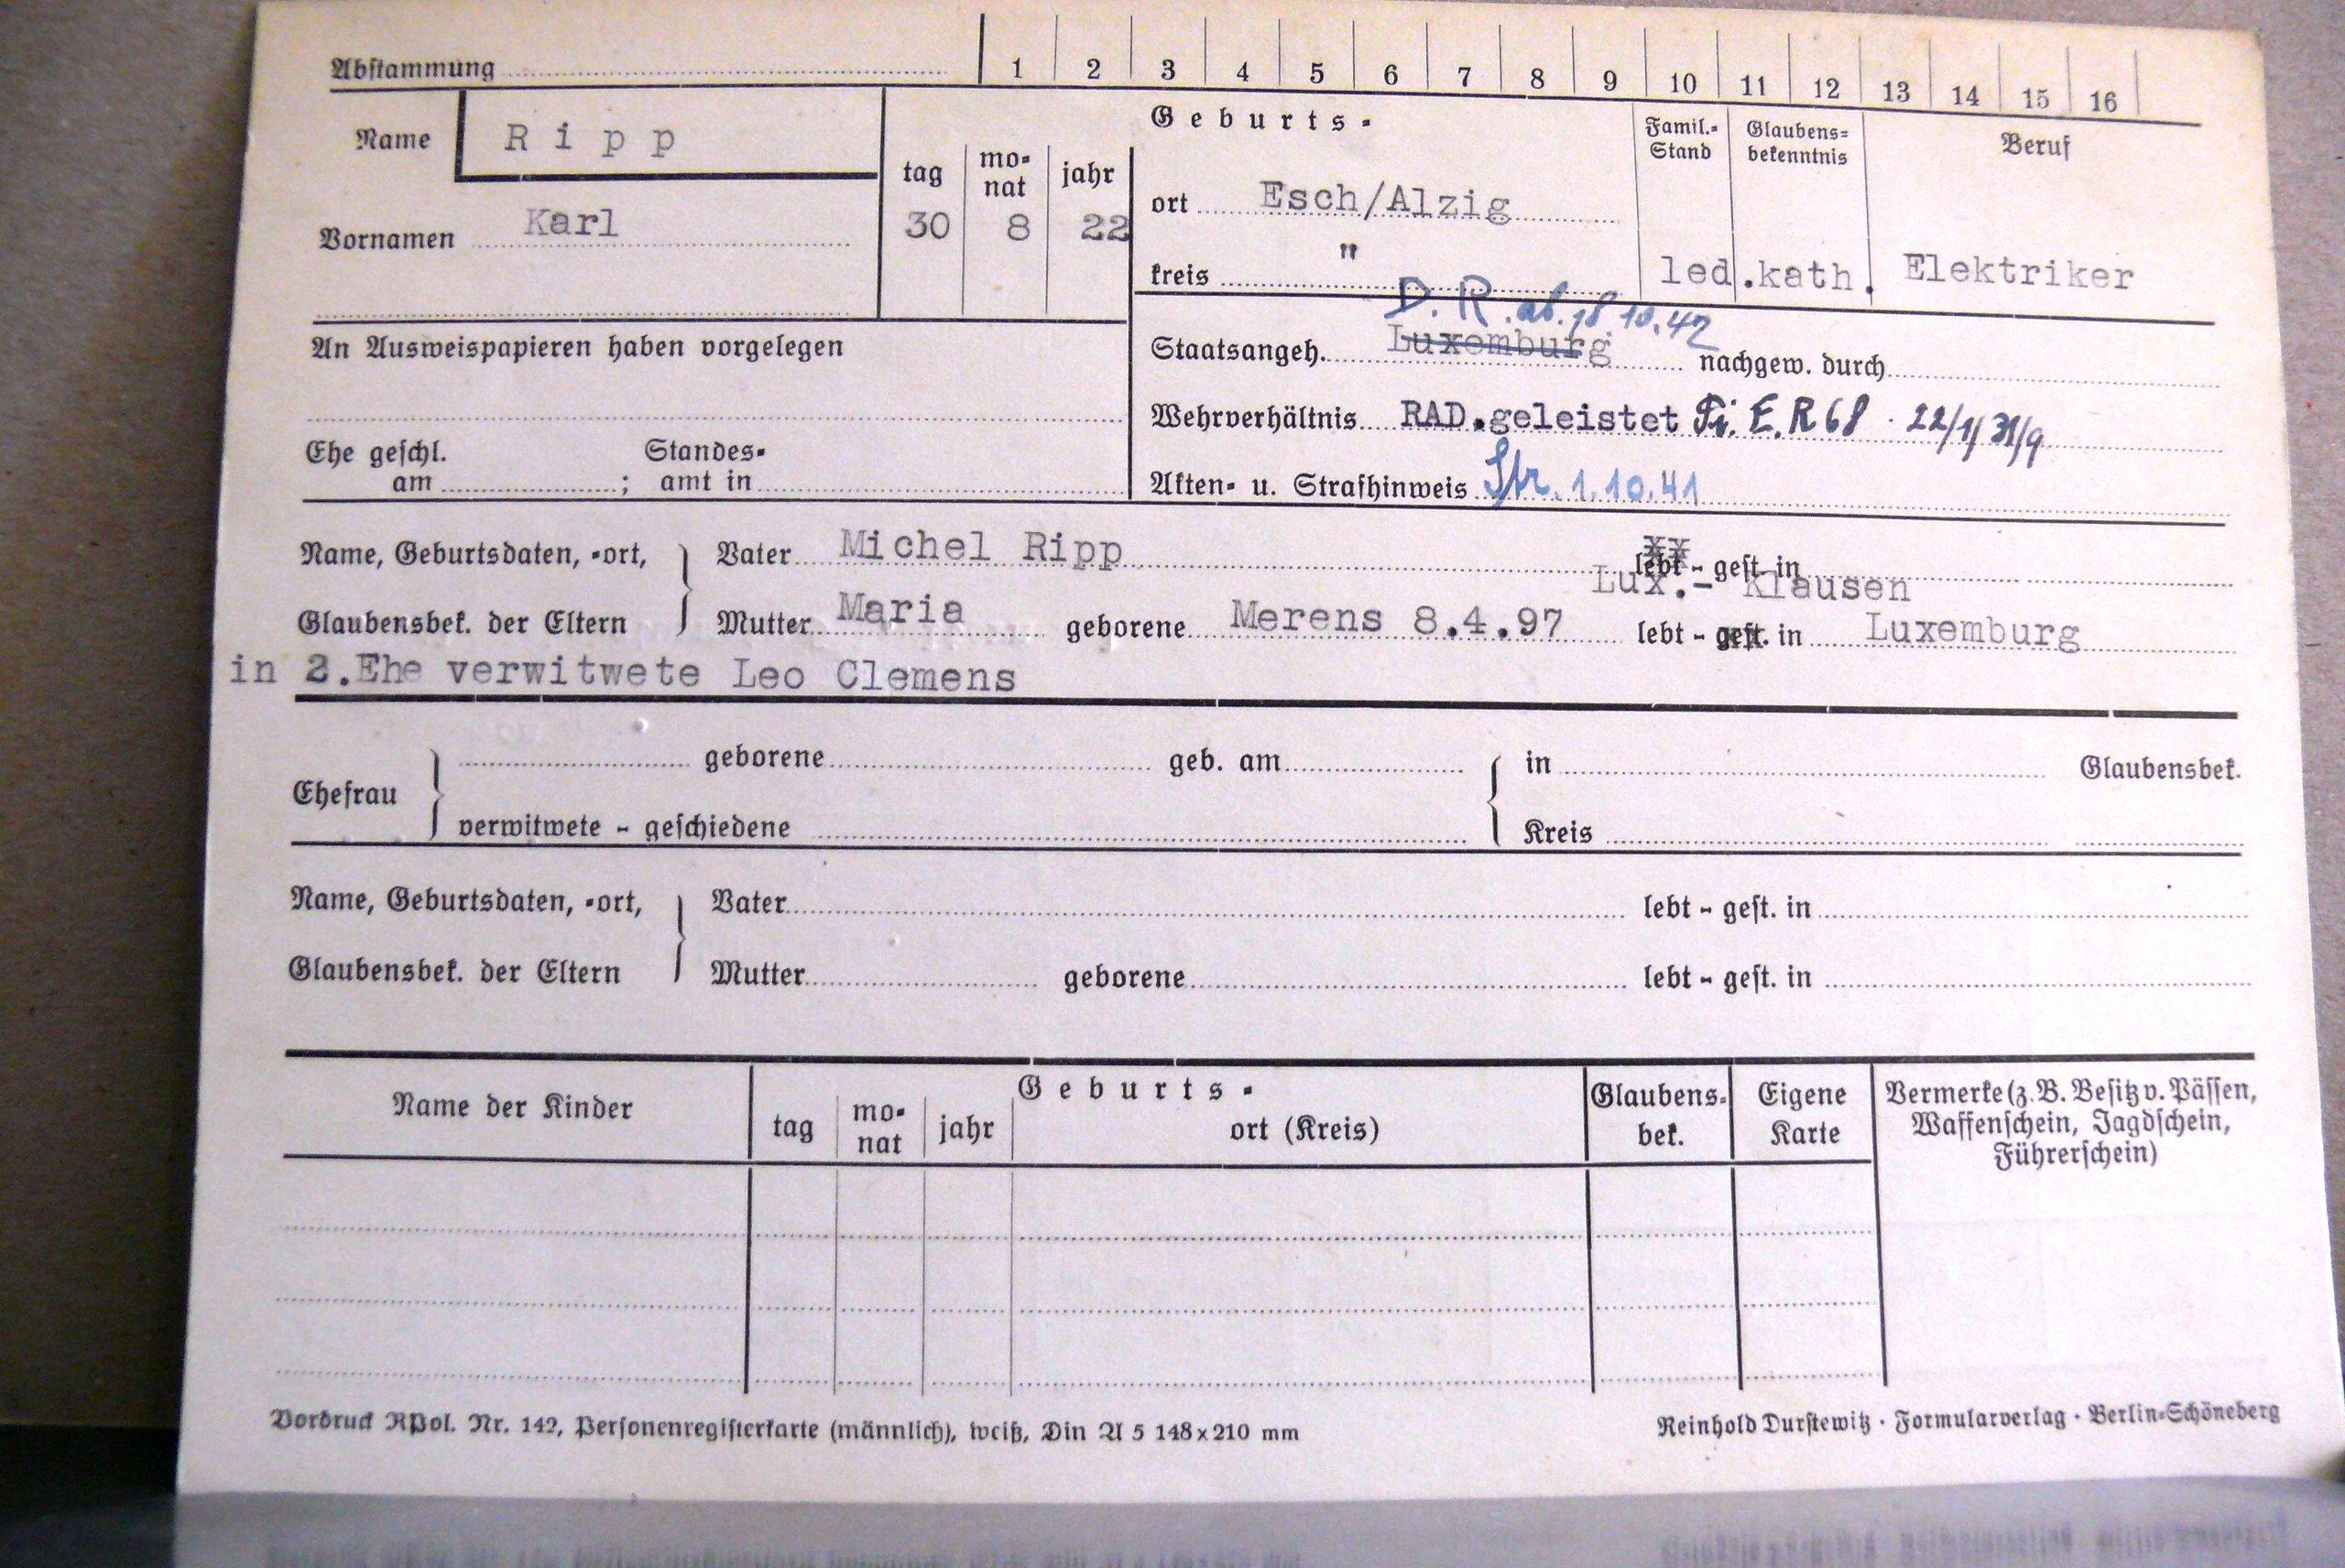 Abstammung 1 2 3 4 5 6 7 8 9 10 11 12 13 14 15 16
Name Ripp
Geburts-
tag monat jahr
Famil.-Stand Glaubens=bekenntnis Beruf
Vornamen Karl 30 8 22
ort Esch/Alzig
kreis " led. kath. Elektriker
D. R. ab. 18 10.42
An Ausweispapieren haben vorgelegen
Staatsangeh. Luxemburg nachgew. durch
Wehrverhältnis RAD.geleistet Pi. E. R 68 · 22/1/31/9
Ehe geschl. am ; Standes-amt in
Akten- u. Strafhinweis Str. 1.10.41
Name, Geburtsdaten, -ort, Vater Michel Ripp lebt - gest. in
Lux.- Klausen
Glaubensbek. der Eltern Mutter Maria geborene Merens 8.4.97 lebt - gest. in Luxemburg
in 2.Ehe verwitwete Leo Clemens
geborene geb. am in Glaubensbek.
Ehefrau
verwitwete - geschiedene Kreis
Name, Geburtsdaten, -ort, Vater lebt - gest. in
Glaubensbek. der Eltern Mutter geborene lebt - gest. in
Name der Kinder
Geburts-
tag monat jahr ort (Kreis)
Glaubens-bek.
Eigene Karte
Vermerke (z. B. Besitz v. Pässen,
Waffenschein, Jagdschein,
Führerschein)
Vordruck RPol. Nr. 142, Personenregisterkarte (männlich), weiß, Din A 5 148x210 mm
Reinhold Durstewitz · Formularverlag · Berlin-Schöneberg